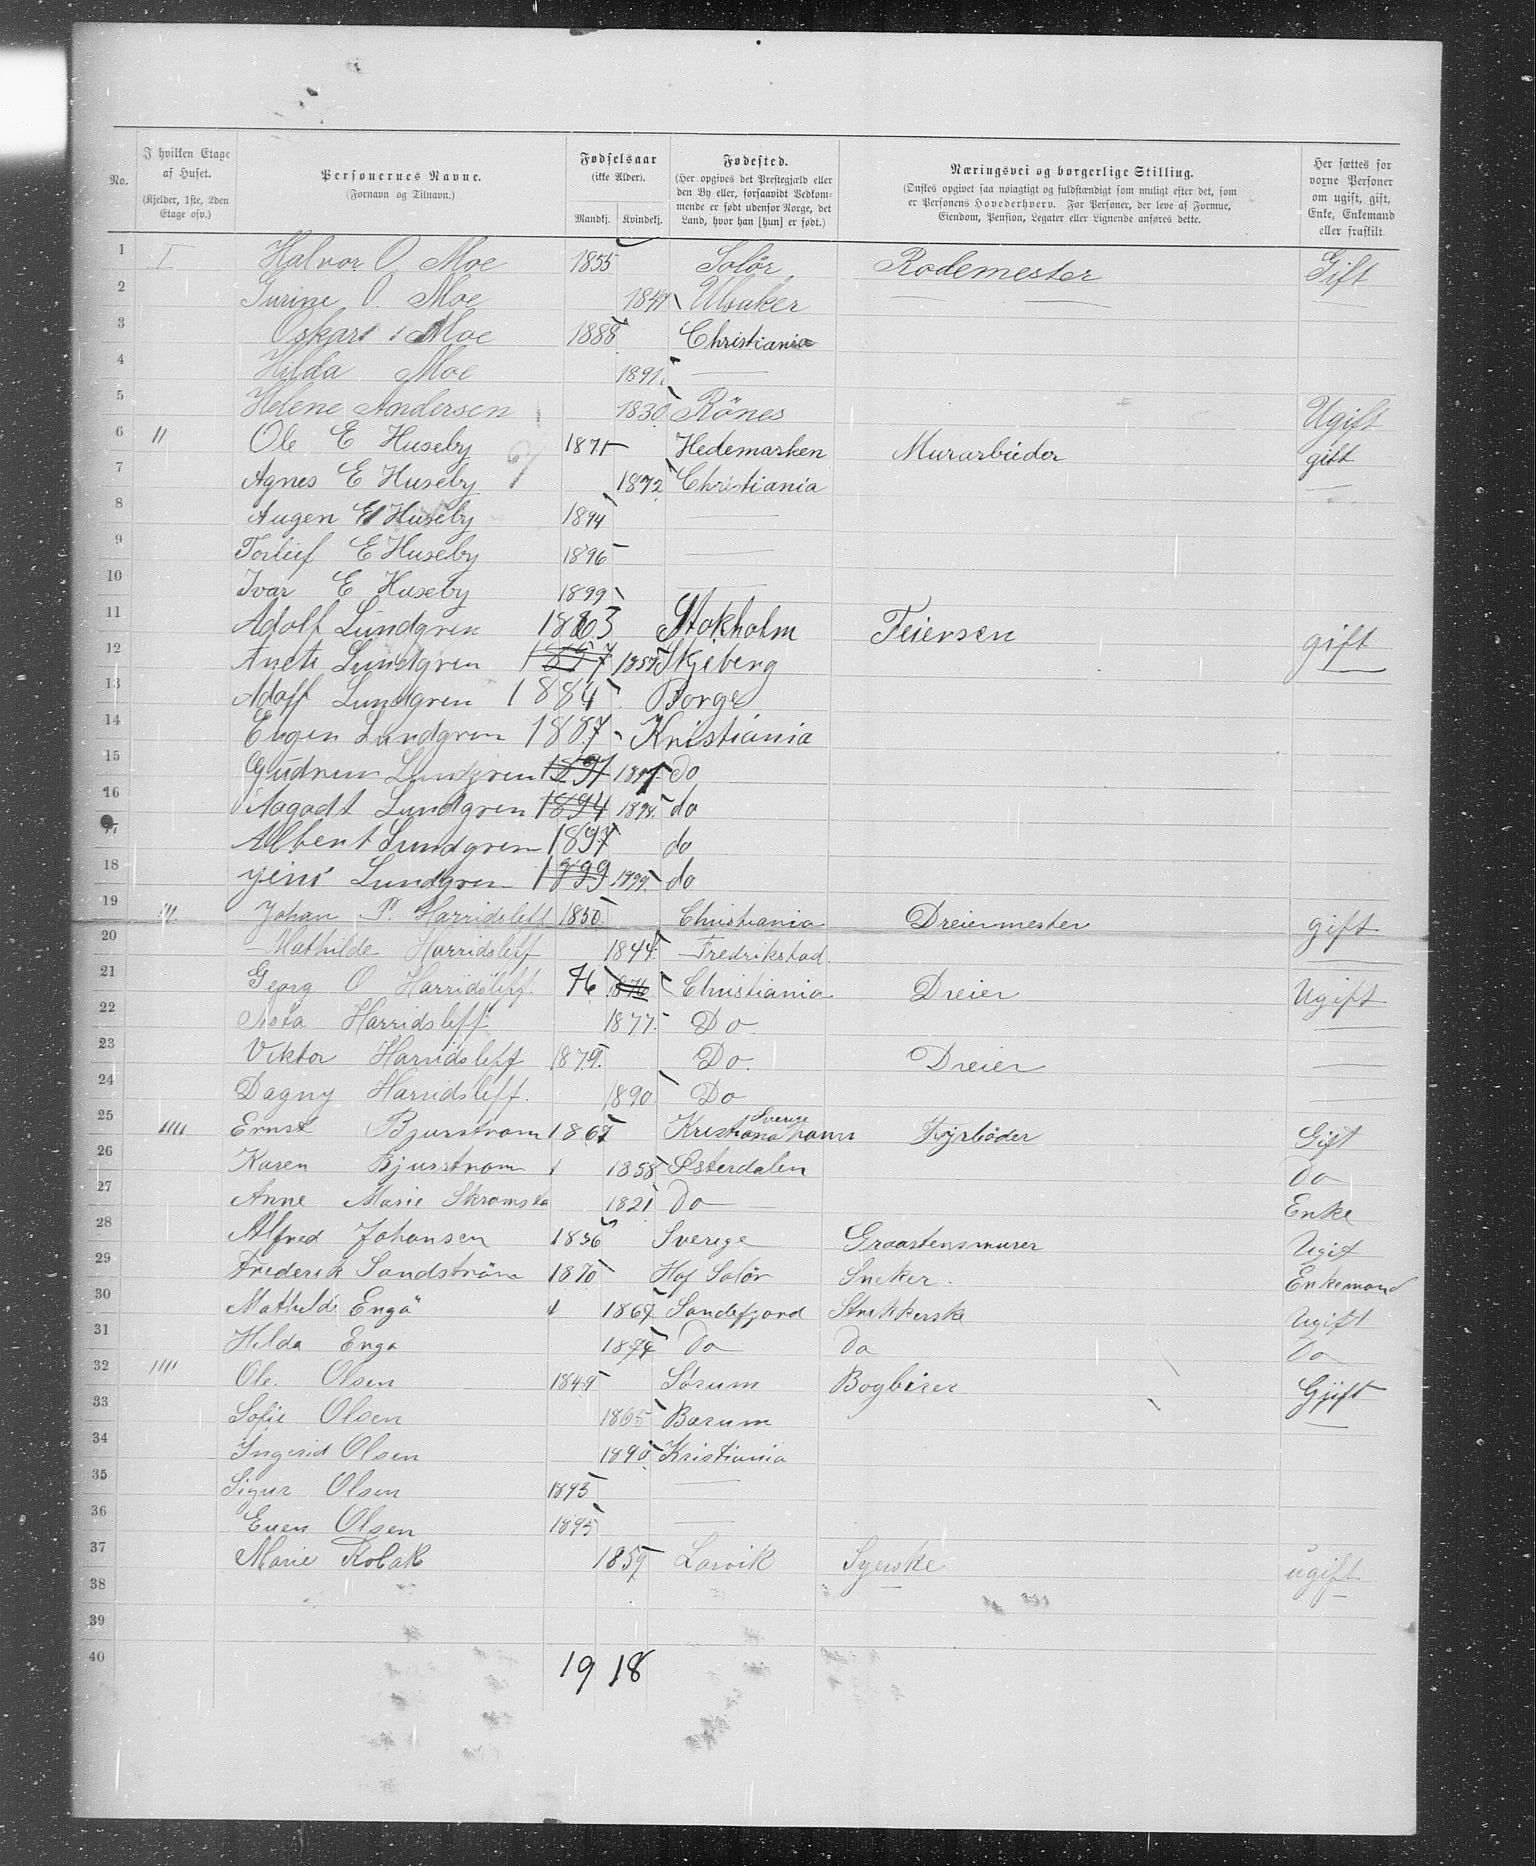 No.
I hvilken Etage af Huset. (Kjelder, 1ste, 2den Etage osv.)
Personernes Navne. (Fornavn og Tilnavn.)
Fødselsaar (ikke Alder). Mandkj. Kvindekj.
Fødested. (Her opgives det Prestegjæld eller den By eller, forsaavidt Vedkommende er født udenfor Norge, det Land, hvor han [hun] er født.)
Næringsvei og borgerlige Stilling. (Ønskes opgivet saa nøiagtigt og fuldstændigt som muligt efter det, som er Personens Hovederhverv. For Personer, der leve af Formue, Eiendom, Pension, Legater eller Lignende anføres dette.)
Her sættes for voxne Personer om ugift, gift, Enke, Enkemand eller fraskilt.
1 I Halvor O Moe 1855 Solør Rodemester Gift
2 Gurine O. Moe 1847 Ulsaker — — —
3 Oskar Moe 1888 Christiania
4 Hilda Moe 1891 —
5 Helene Andersen 1830 Rönes Ugift
6 II Ole E Huseby 1871 Hedemarken Murarbeider gift
7 Agnes E Huseby 1872 Christiania —
8 Augen E Huseby 1894 —
9 Torleif E Huseby 1896 —
10 Ivar E Huseby 1899 —
11 Adolf Lundgren 1863 Stokholm Feiersen gift
12 Lundgren 1857 1857 Skjeberg —
13 Adolf Lundgren 1884 Borge
14 Eugen Lundgren 1887 Kristiania
15 Gudrun Lundgren 1891 1891 do
16 Aagodt Lundgren 1894 1894 do
17 Albert Lundgren 1897 do
18 yens Lundgren 1899 1899 do
19 III Johan P. Harridsleff 1850 Christiania Dreiermester gift
20 Mathilde Harridsleff 1844 Fredrikstad —
21 Georg O Harridsleff 76 1876 Christiania Dreier Ugift
22 Harridsleff 1877 Do —
23 Viktor Harridsleff 1879 Do. Dreier —
24 Dagny Harridsleff. 1890 Do —
25 IIII Ernst Bjurstrom 1867 Kristianahamn Sverige Fyrböder Gift
26 Karen Bjurstrom 1858 Østerdalen Do
27 Anne Marie Skramsta 1821 Do — Enke
28 Alfred Johansen 1856 Sverige Graastensmurer Ugif
29 Frederik Sandström 1870 Hof Solör Sneker. Enkemand
30 Mathilde Engö 1867 Sandefjord Strikkerske Ugift
31 Hilda Engo 1874 Do Do Do
32 IIII Ole. Olsen 1849 Sörum Bogbinder Gjift
33 Sofie Olsen 1865 Bærum —
34 Ingerid Olsen 1890 Kristiania
35 Sigur Olsen 1893 —
36 Even Olsen 1895 —
37 Marie Kolak 1859 Larvik Syerske ugift
38
39
40
19 18